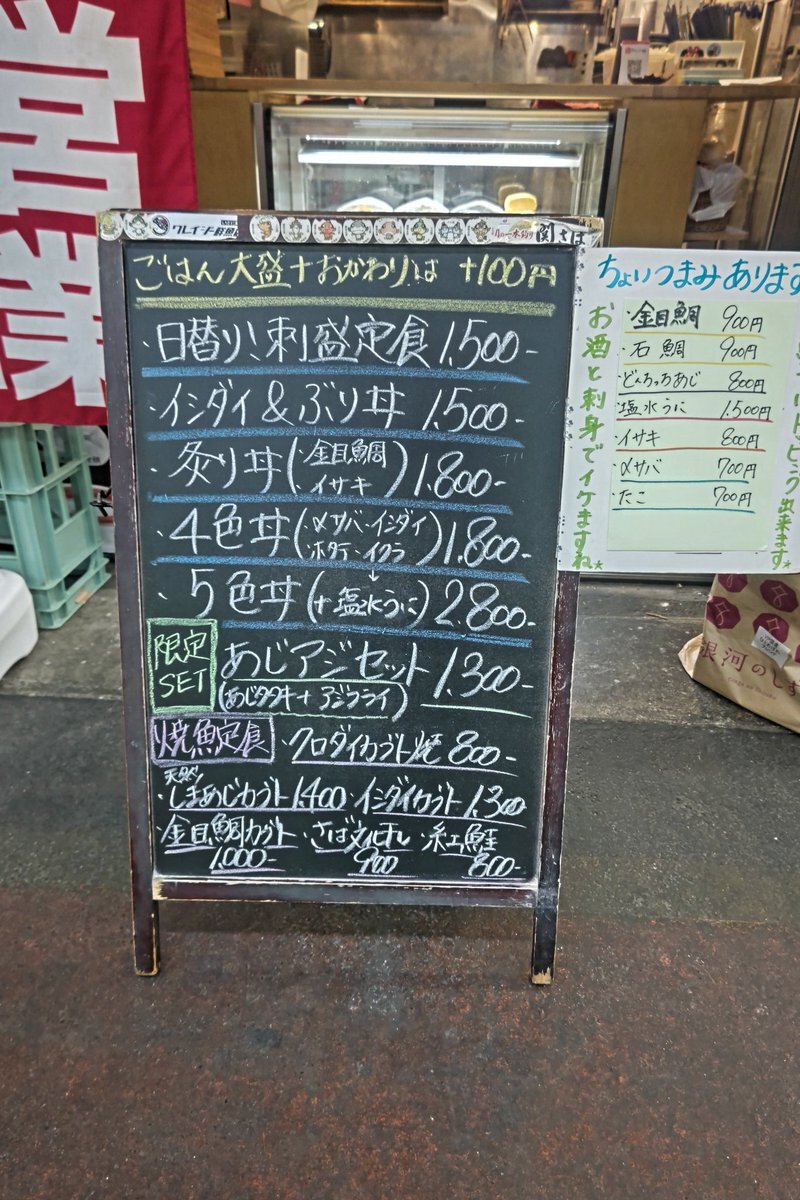 営業
クレイジー鮮魚
関さば
ごはん大盛+おかわりは +100円
・日替り!刺盛定食 1,500-
・イシダイ&ぶり丼 1,500-
・炙り丼(・金目鯛 ・イサキ) 1,800-
・4色丼(〆サバ・イシダイ ホタテ・イクラ) 1,800-
・5色丼(+塩水うに) 2,800-
限定SET あじアジセット 1,300-
(あじタタキ+アジフライ)
焼魚定食 ・クロダイカブト焼 800-
天然
・しまあじカブト 1,400 ・イシダイカブト 1,300
・金目鯛カブト 1,000- ・さば文化干し 900 ・紅鮭 800-
ちょいつまみあります
お酒と刺身でイケますね★
・金目鯛 900円
・石鯛 900円
・どんちっちあじ 800円
・塩水うに 1,500円
・イサキ 800円
・〆サバ 700円
・たこ 700円
ピング出来ます★
銀河のしず